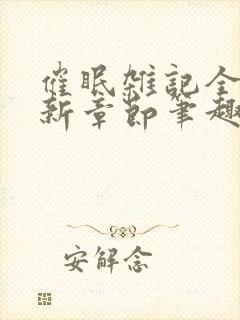 催眠雑記全
新章節筆趣
安解念